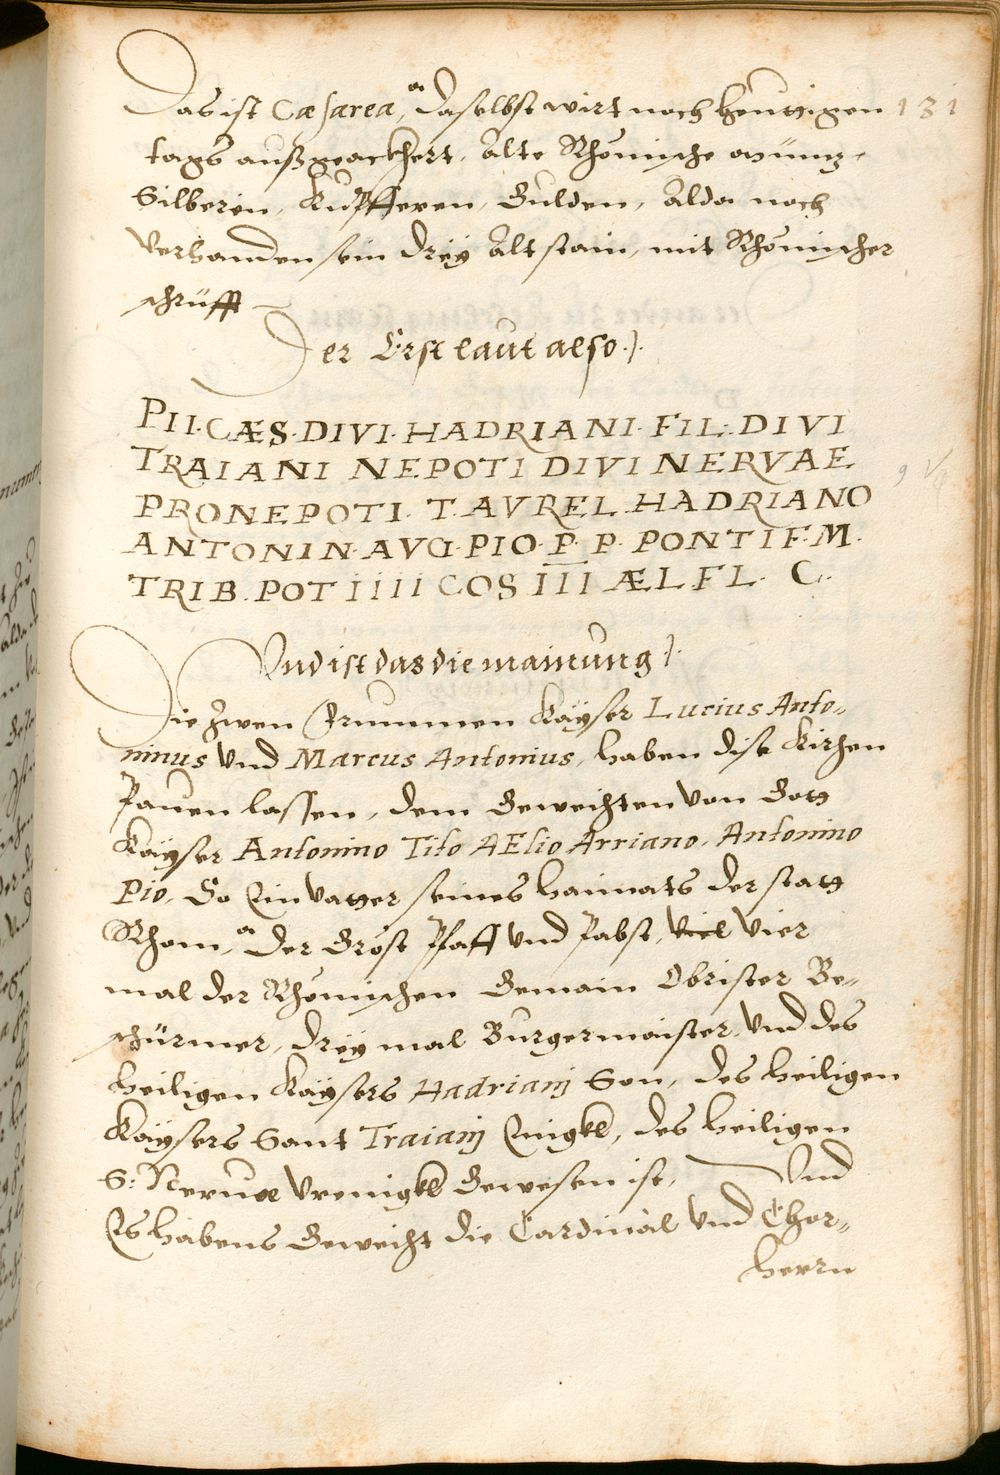 Das ist Cæsarea, daselbst wirt noch heuttigen 131
tags außgeackhert, Alte Rhömische münz,
Silberen, Kupfferen, Gulden, Alda noch
Verhanden sein dreÿ Alt stain, mit Rhömischer
schrüfft
Der Erst laut also.
PII. CÆS. DIVI. HADRIANI. FIL. DIVI
TRAIANI NEPOTI DIVI NERVAE
PRONEPOTI. T. AVREL HADRIANO
ANTONIN. AVG. PIO. P. P. PONTIF. M.
TRIB. POT IIII COS III ÆL FL. C.
Und ist das die mainung
Die zwen Frummen Kaÿser Lucius Anto-
ninus Vnd Marcus Antonius, haben dise Kirchen
Pauen lassen, dem Geweichten von Gott
Kaÿser Antonino Tito AElio Arriano, Antonino
Pio, So Ein Vatter seines haimats der statt
Rhom, der Gröst Pfaff Vnd Pabst, Viel Vier
mal der Rhömischen Gemain Obrister Be-
schürmer, dreÿ mal Burgermaister, Vnd des
heiligen Kaÿsers Hadrianj Son, des heiligen
Kaÿsers Sant Traianj Enigkl, des heiligen
S: Neruæ Vrenigkl Gewesen ist, Vnd
Es habens Geweicht die Cardinal Vnd Chor-
herrn